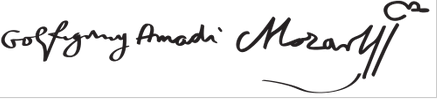 Wolfgang Amadè Mozart